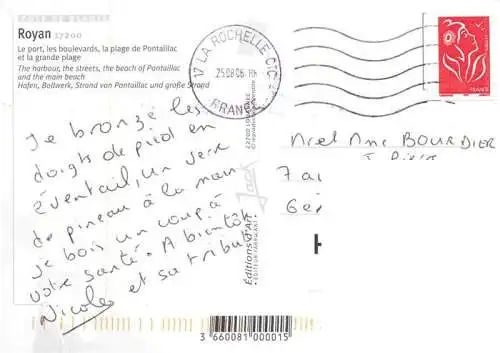 Royan 17200
Le port, les boulevards, la plage de Pontaillac
et la grande plage
The harbour, the streets, the beach of Pontaillac
and the main beach
Hafen, Bollwerk, Strand von Pontaillac und große Strand
17 LA ROCHELLE CTC
25.08.06
FRANCE
FRANCE
Je bronze les
doigts de pied en
éventail, un verre
de pineau à la main
je bois un coup à
votre santé. A bientôt
Nicole et sa tribu
BOURDIER
7
Editions d'Art
Jack
3 660081 000015